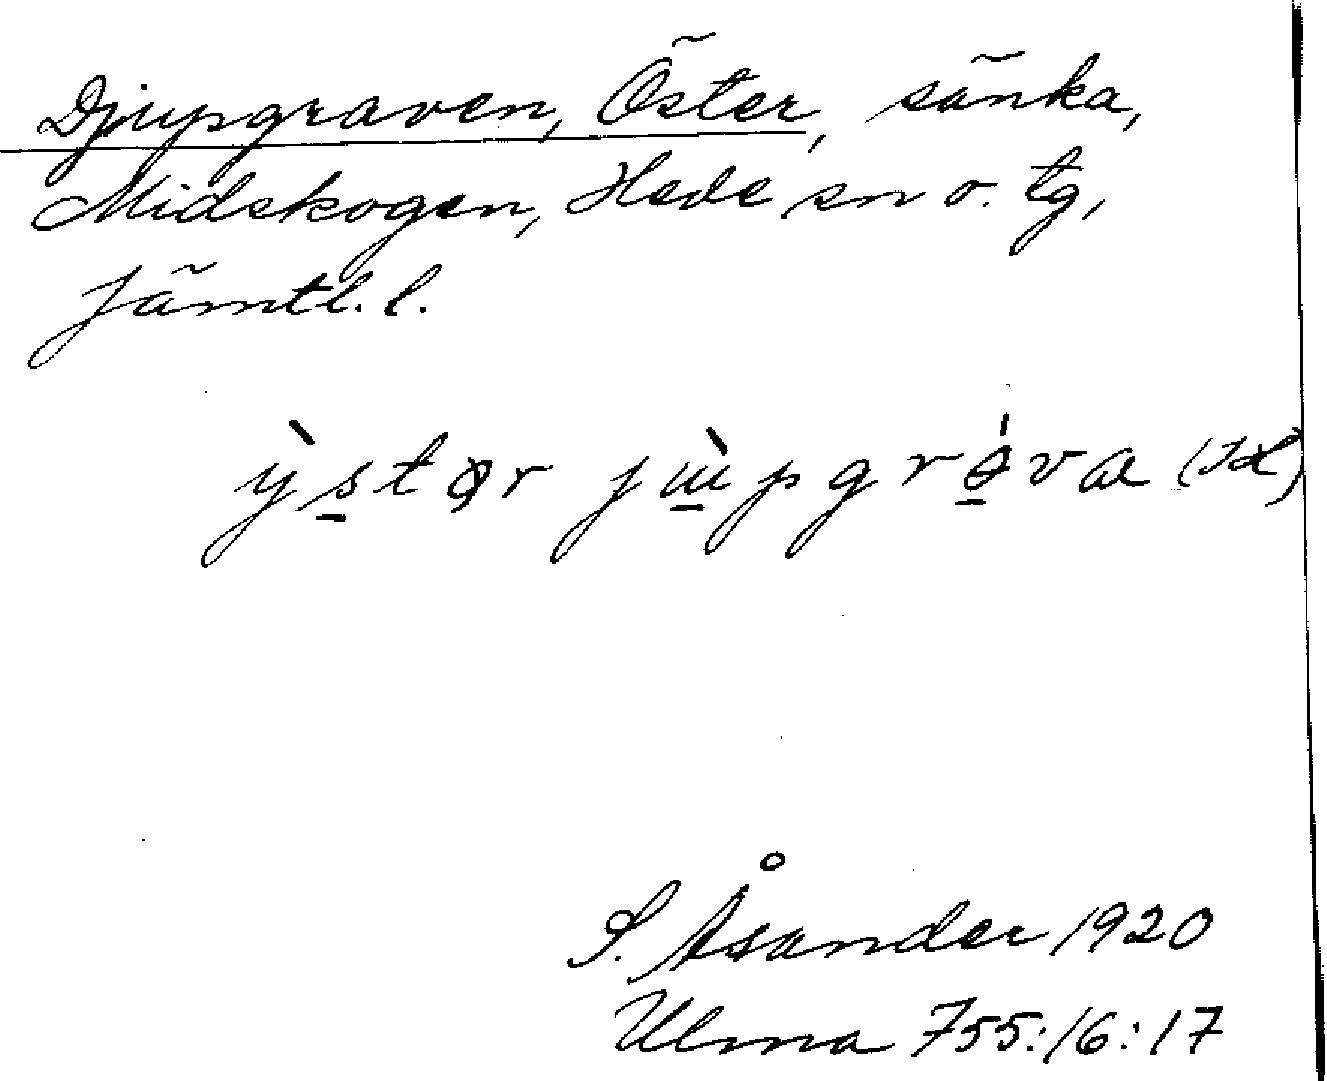 Djupgraven, Öster, sänka,
Midskogen, Hede sn o. tg,
Jämtl. l.
ỳstər jɯ̀pgrǿva
S. Åsander 1920
Ulma 755:16:17